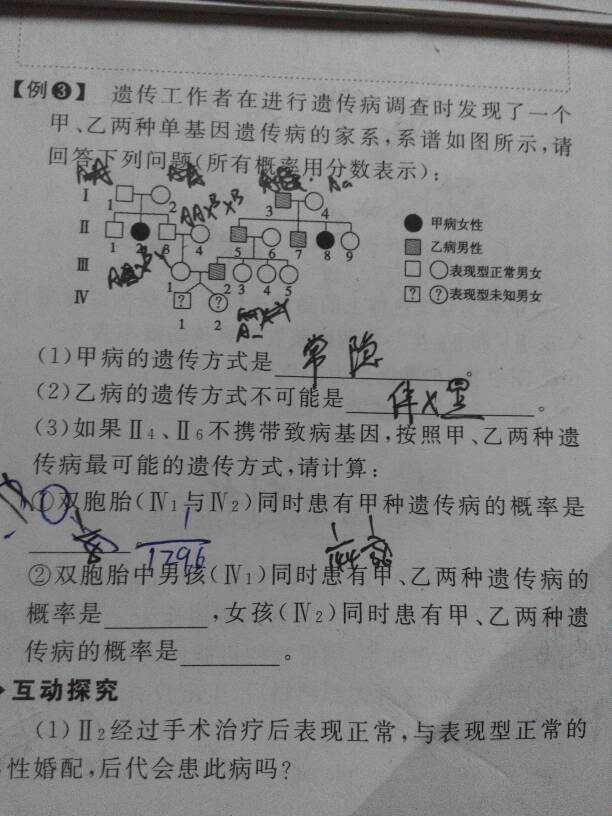 【例❸】 遗传工作者在进行遗传病调查时发现了一个
甲、乙两种单基因遗传病的家系,系谱如图所示,请
回答下列问题(所有概率用分数表示):
Aa
Ⅰ 1 2 3 4
AAXᴮXᴮ
Ⅱ 1 2 3 4 5 6 7 8 9
Ⅲ 1 2 3 4 5
Ⅳ ? ?
1 2
● 甲病女性
乙病男性
□○表现型正常男女
? ? 表现型未知男女
(1)甲病的遗传方式是 常隐 。
(2)乙病的遗传方式不可能是 伴X显 。
(3)如果Ⅱ4、Ⅱ6不携带致病基因,按照甲、乙两种遗
传病最可能的遗传方式,请计算:
①双胞胎(Ⅳ1与Ⅳ2)同时患有甲种遗传病的概率是
。 1/1296
②双胞胎中男孩(Ⅳ1)同时患有甲、乙两种遗传病的
概率是 ,女孩(Ⅳ2)同时患有甲、乙两种遗
传病的概率是 。
互动探究
(1)Ⅱ2经过手术治疗后表现正常,与表现型正常的
性婚配,后代会患此病吗?